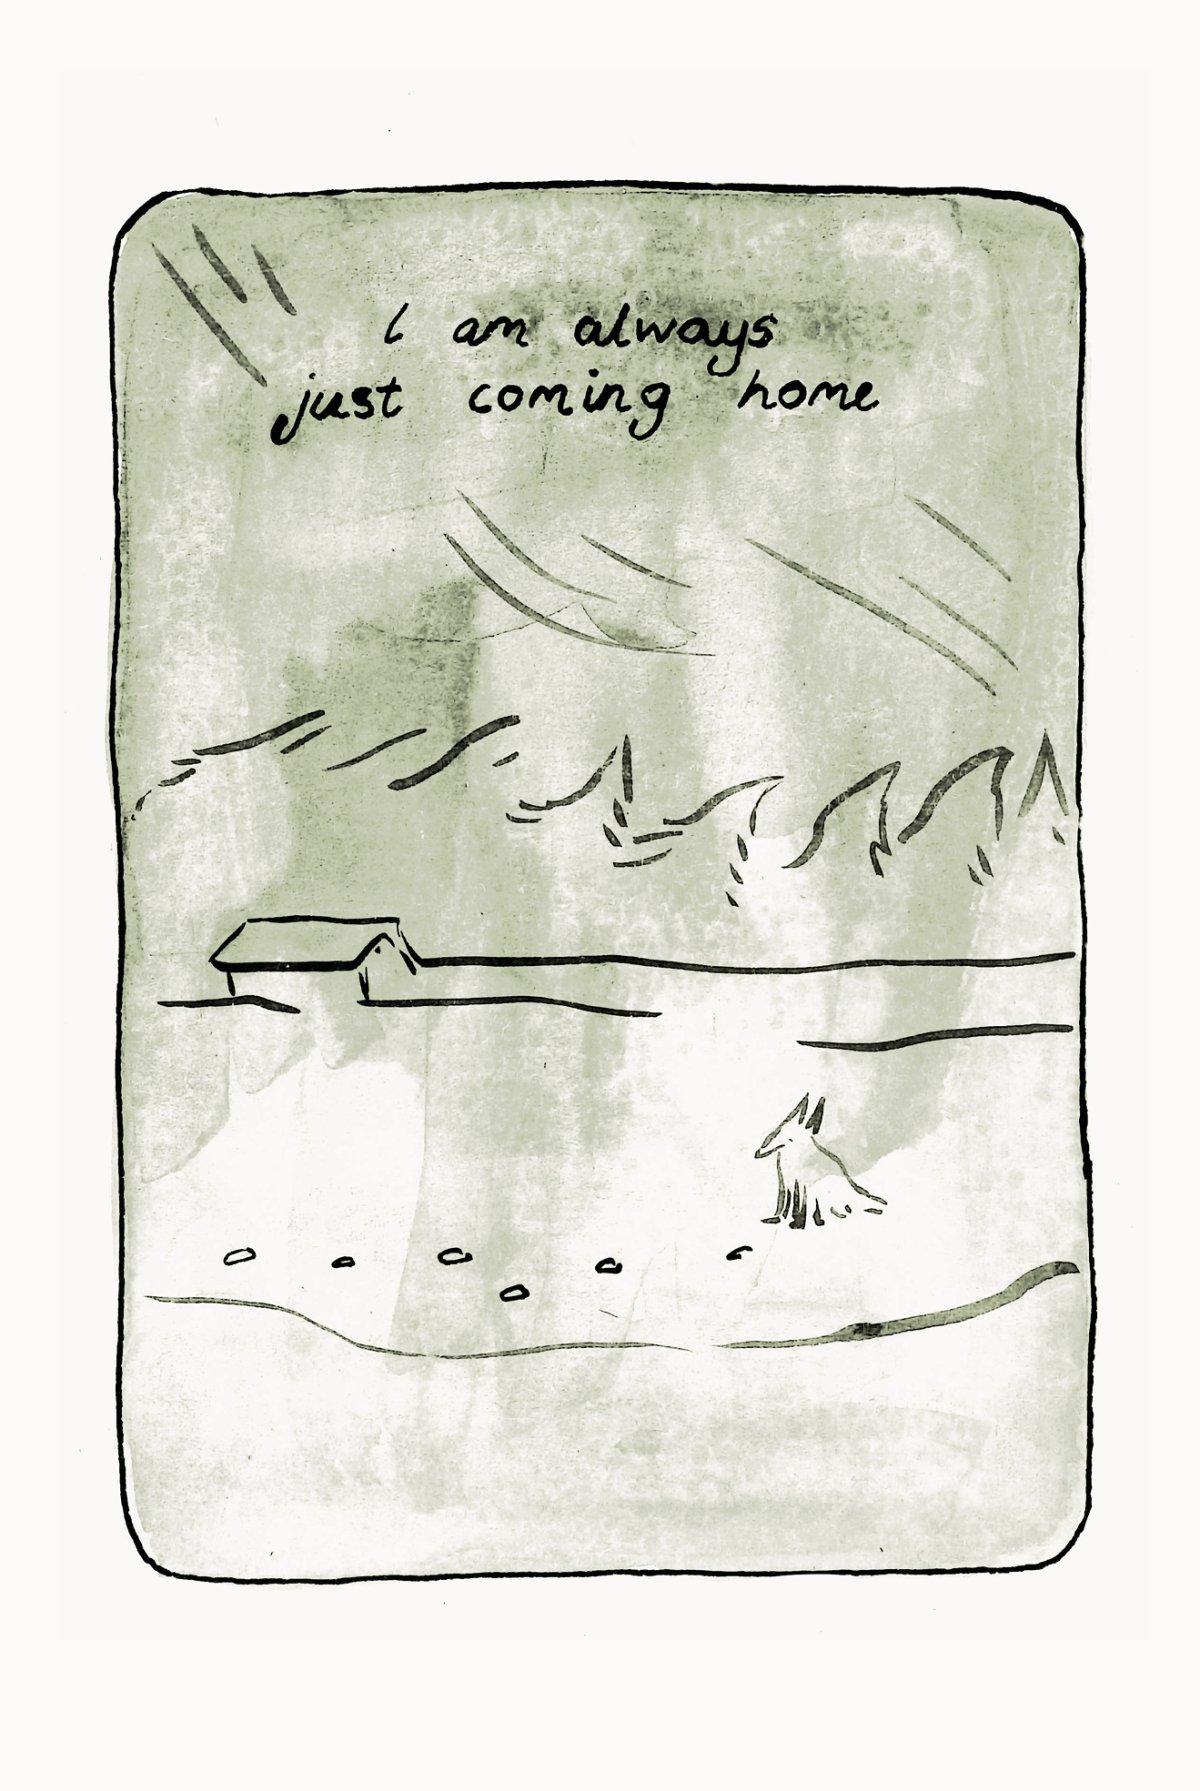 i am always
just coming home